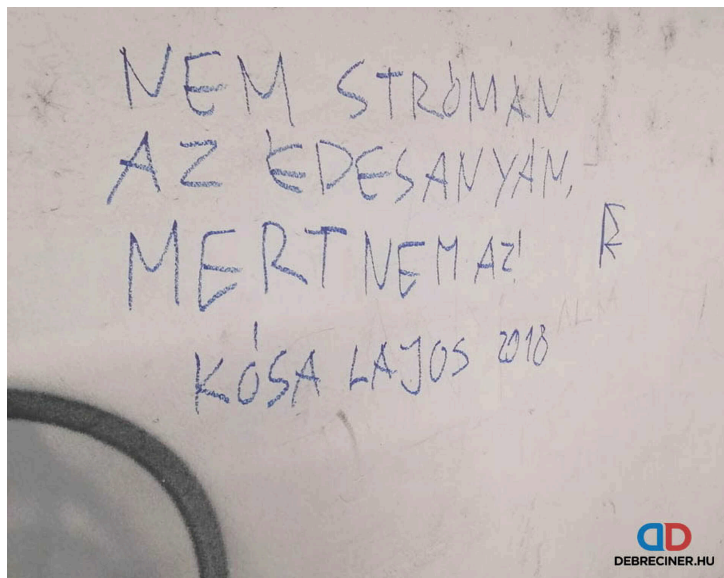 NEM STRÓMAN
AZ ÉDESANYÁM,
MERT NEM AZ!
KÓSA LAJOS 2018
DEBRECINER.HU